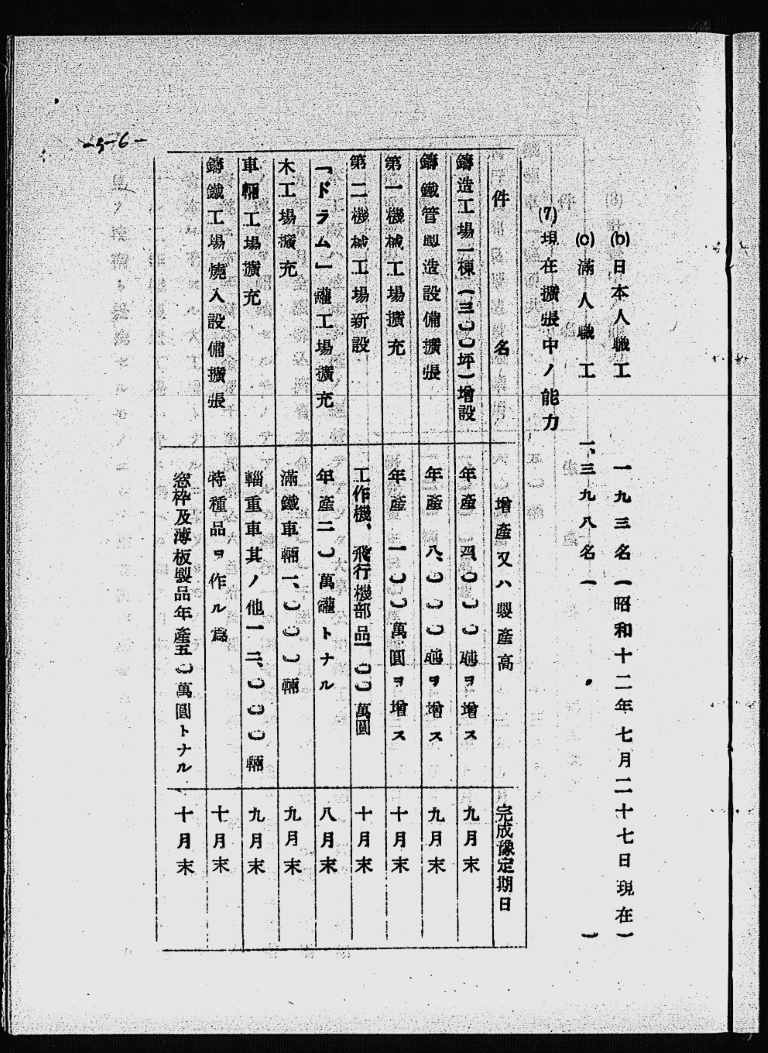 -5-6-
(b) 日本人職工 一九三名（昭和十二年七月二十七日現在）
(c) 滿人職工 一、三九八名（ 〃 ）
(7) 現在擴張中ノ能力
件名 增產又ハ製產高 完成豫定期日
鑄造工場一棟（三〇〇坪）增設 年產 四〇〇〇瓲ヲ增ス 九月末
鑄鐵管製造設備擴張 年產 八、〇〇〇瓲ヲ增ス 九月末
第一機械工場擴充 年產 一〇〇萬圓ヲ增ス 十月末
第二機械工場新設 工作機、飛行機部品一〇〇萬圓 十月末
「ドラム」罐工場擴充 年產二〇萬罐トナル 八月末
木工場擴充 滿鐵車輛一、〇〇〇輛 九月末
車輛工場擴充 輜重車其ノ他一二、〇〇〇輛 九月末
鑄鐵工場燒入設備擴張 特種品ヲ作ル爲 十月末
窓枠及薄板製品年產五〇萬圓トナル 十月末